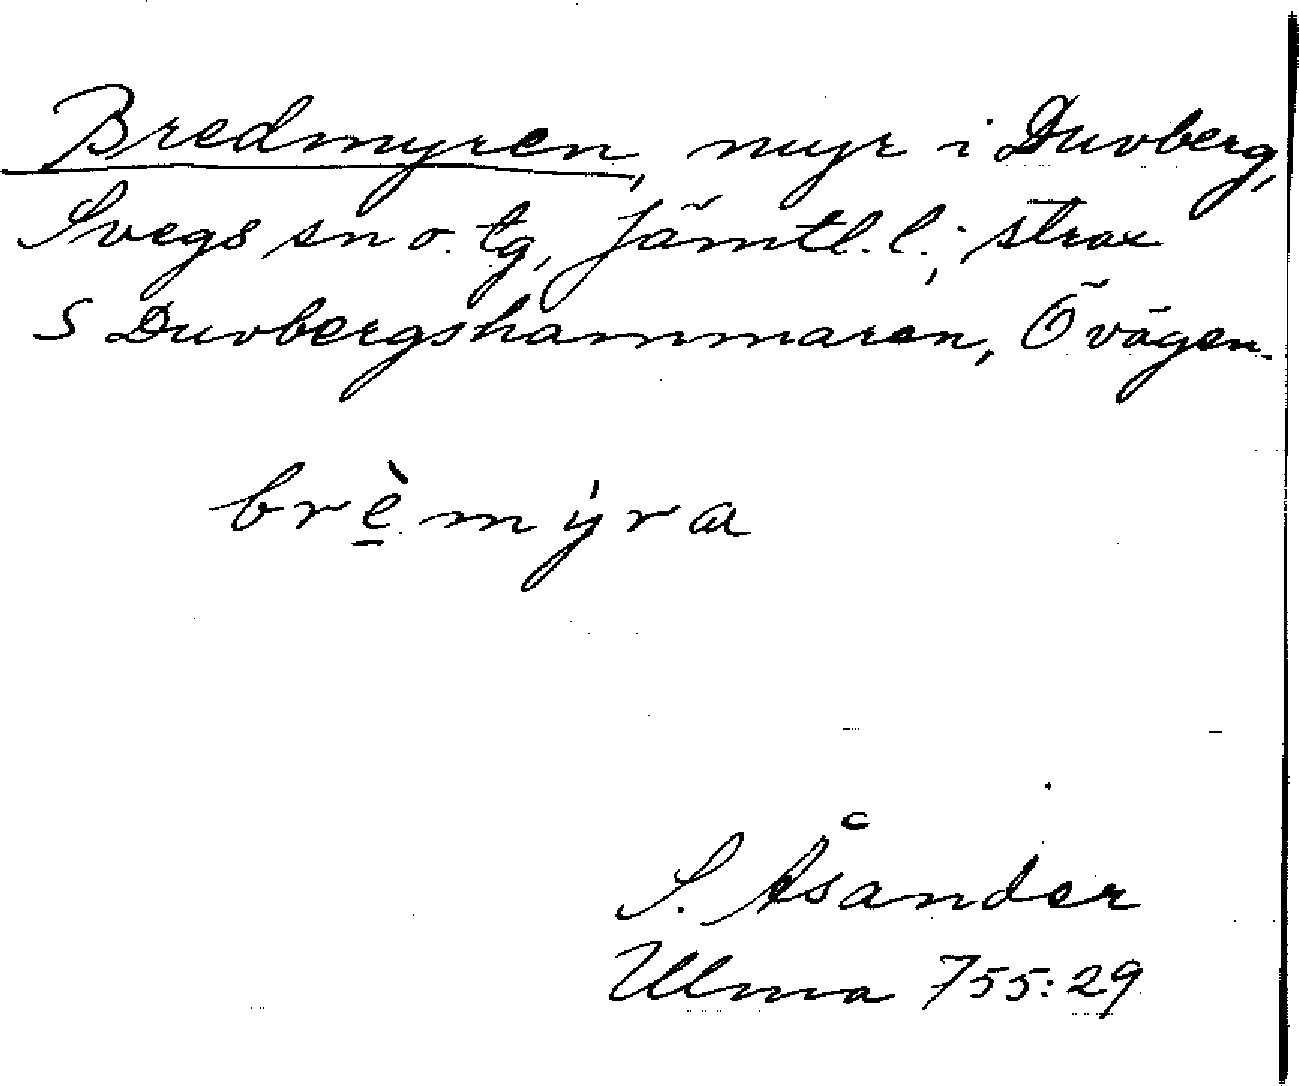 Bredmyren, myr i Duvberg,
Svegs sn o. tg, Jämtl. l.; strax
S Duvbergshammaren, Ö vägen.
brè̱mýra
S. Åsander
Ulma 755:29